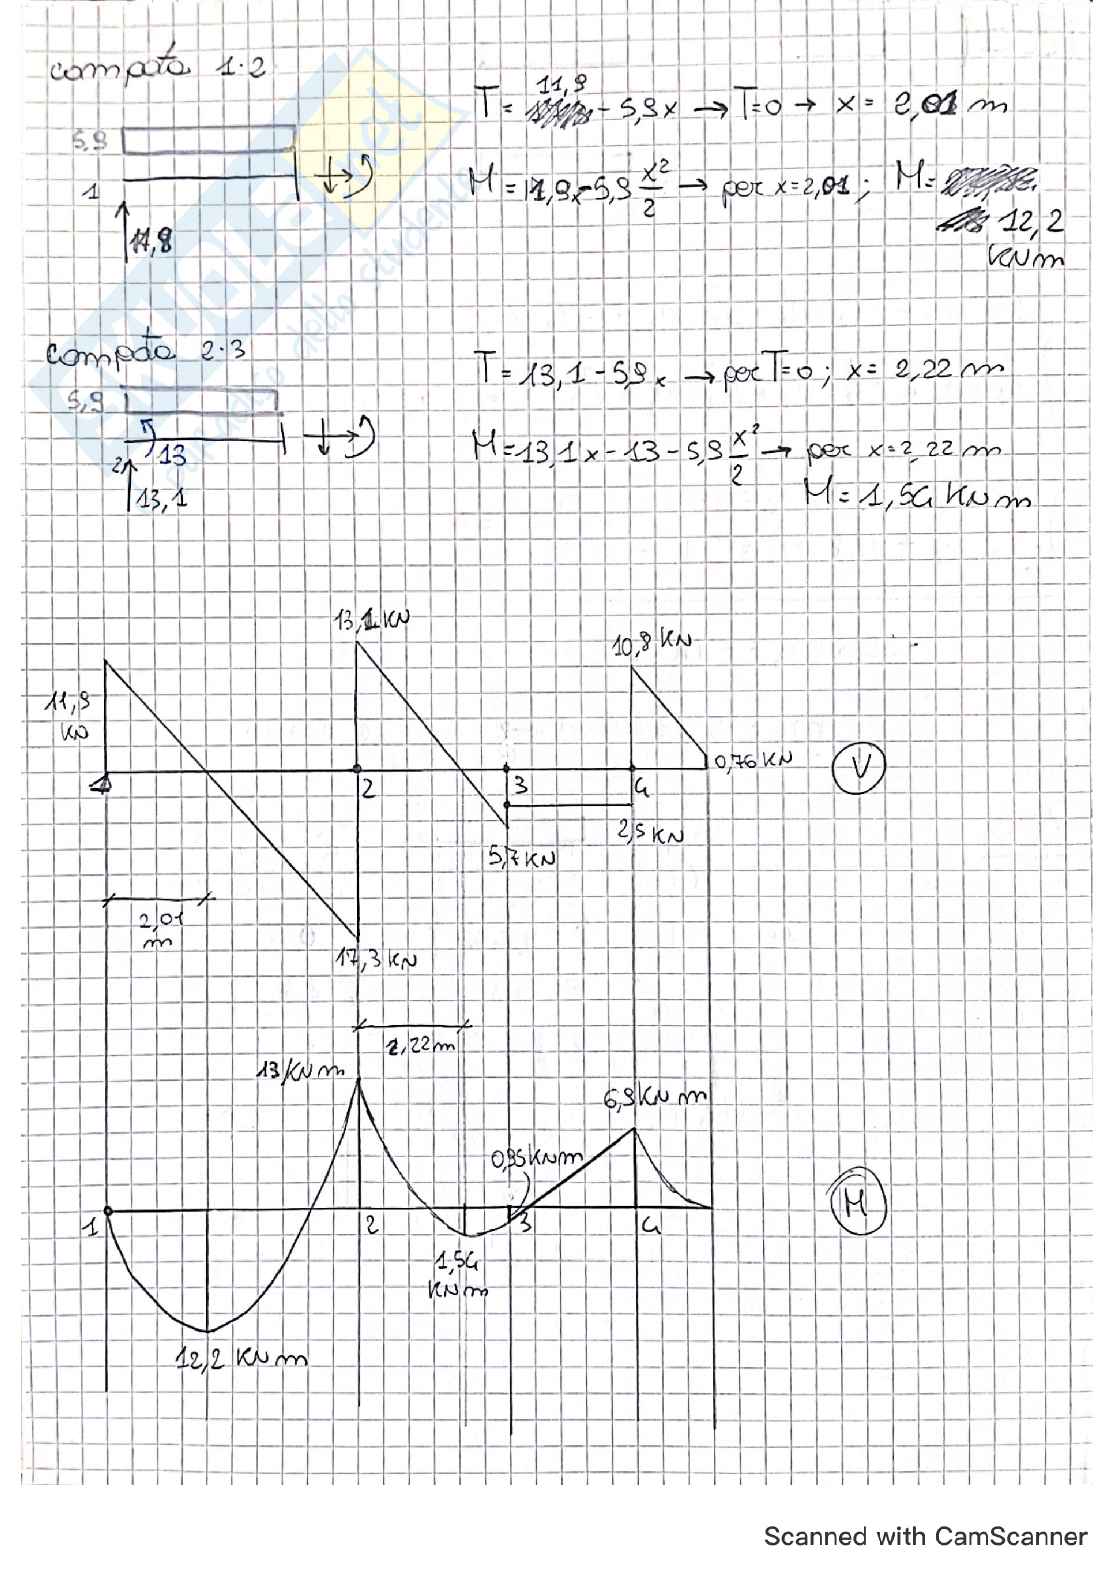 campata 1-2
T = 11,9 - 5,9x → T=0 → x = 2,01 m
5,9
1
M = 11,9x - 5,9 x²/2 → per x = 2,01 ; M =
12,2
KNm
11,9
campata 2-3
T = 13,1 - 5,9x → per T=0 ; x = 2,22 m
5,9
2
13
M = 13,1x - 13 - 5,9 x²/2 → per x = 2,22 m
M = 1,54 KNm
13,1
13,1 KN
10,8 KN
11,9
KN
0,76 KN
V
1
2
3
4
2,5 KN
5,7 KN
2,01
m
17,3 KN
2,22 m
13 KNm
6,9 KNm
0,95 KNm
M
1
2
3
4
1,54
KNm
12,2 KNm
Scanned with CamScanner